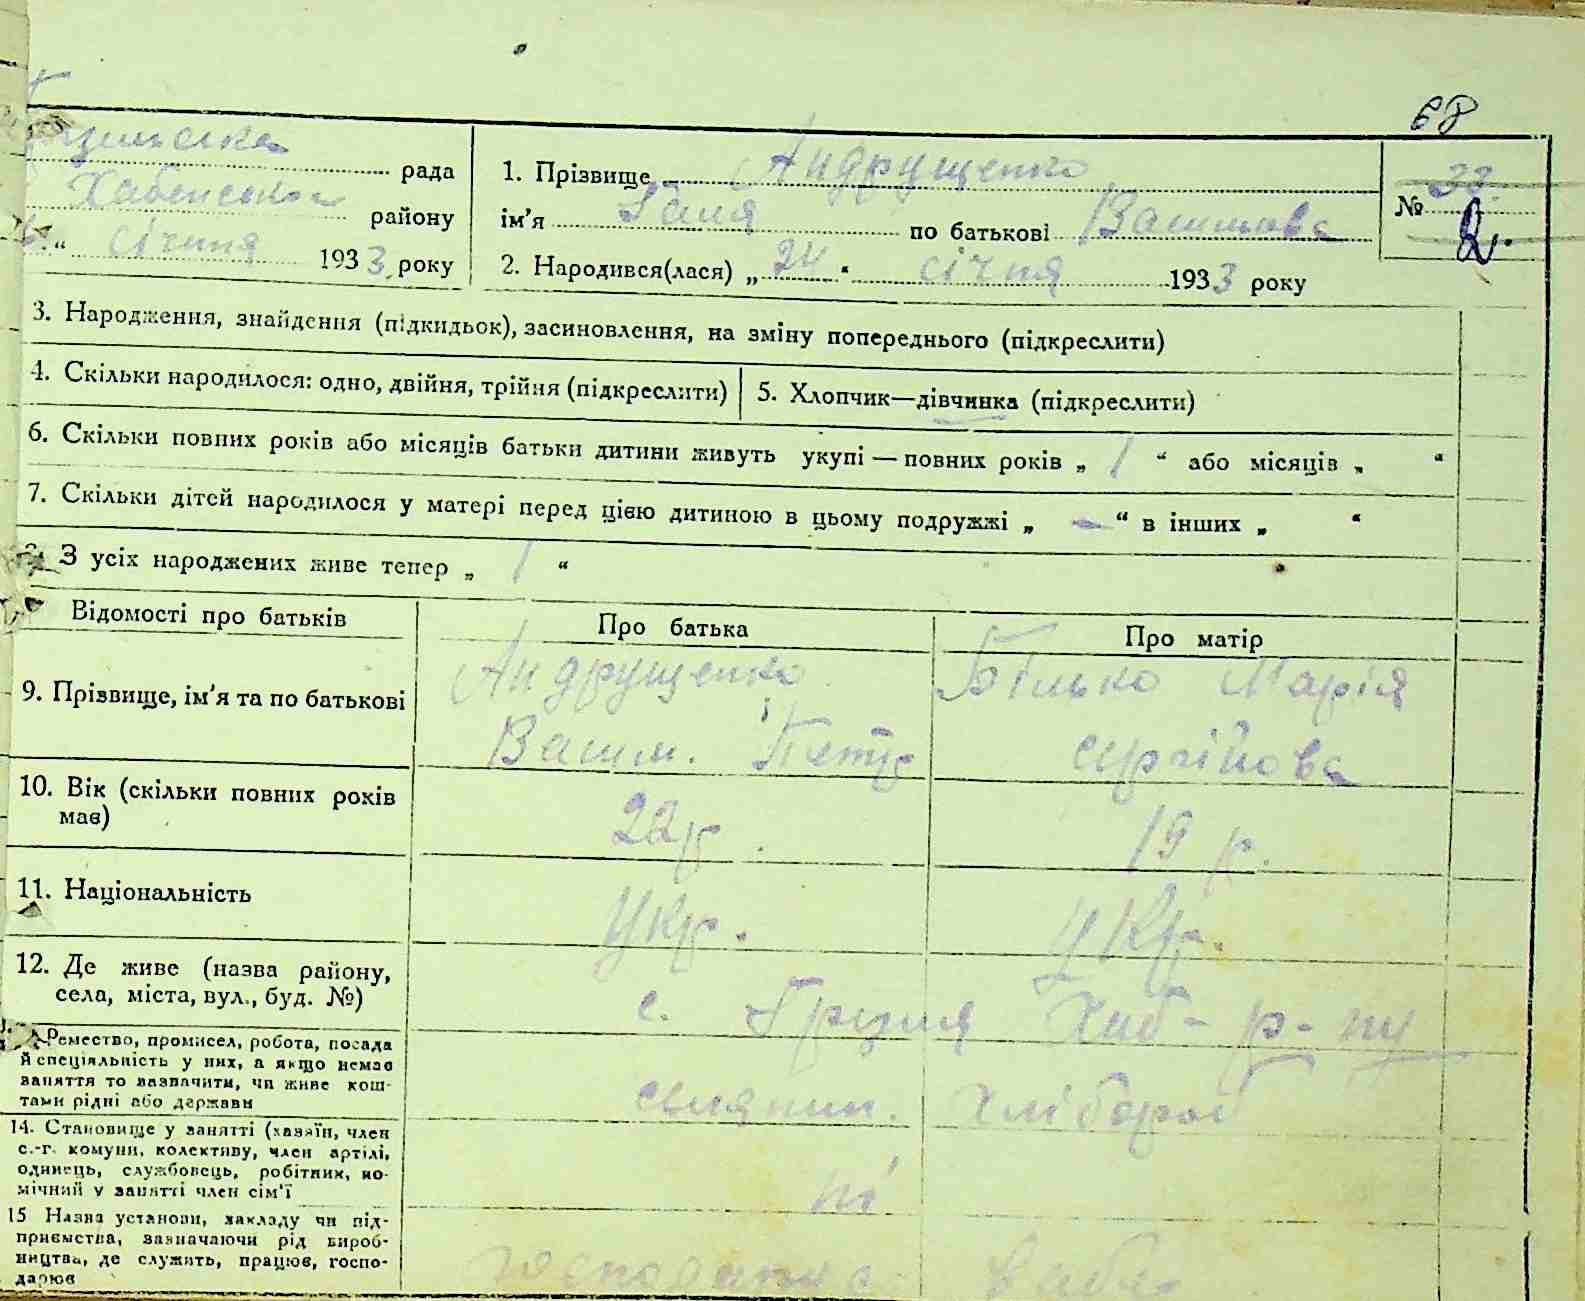 68
рада
1. Прізвище Андрущенко
33.
Хабенського району
ім'я Галя по батькові Васильова
№ 2.
січня 1933 року
2. Народився(лася) „ 24 “ січня 1933 року
3. Народження, знайдення (підкидьок), засиновлення, на зміну попереднього (підкреслити)
4. Скільки народилося: одно, двійня, трійня (підкреслити)
5. Хлопчик—дівчинка (підкреслити)
6. Скільки повних років або місяців батьки дитини живуть укупі — повних років „ 1 “ або місяців „ “
7. Скільки дітей народилося у матері перед цією дитиною в цьому подружжі „ — “ в інших „ “
З усіх народжених живе тепер „ 1 “
Відомості про батьків
Про батька
Про матір
9. Прізвище, ім'я та по батькові
Андрущенко
Васил. Петр
Білько Марія
Сергійова
10. Вік (скільки повних років
має)
22 р.
19 р.
11. Національність
Укр.
Укр.
12. Де живе (назва району,
села, міста, вул., буд. №)
с. Грузля Хаб-р-ну
Ремество, промисел, робота, посада
й спеціяльність у них, а якщо немає
заняття то зазначити, чи живе кош-
тами рідні або держави
селянин. Хлібороб
14. Становище у занятті (хазяїн, член
с.-г. комуни, колективу, член артілі,
одинець, службовець, робітник, по-
мічний у занятті член сім'ї
ні
15 Назва установи, закладу чи під-
приємства, зазначаючи рід вироб-
ництва, де служить, працює, госпо-
дарює